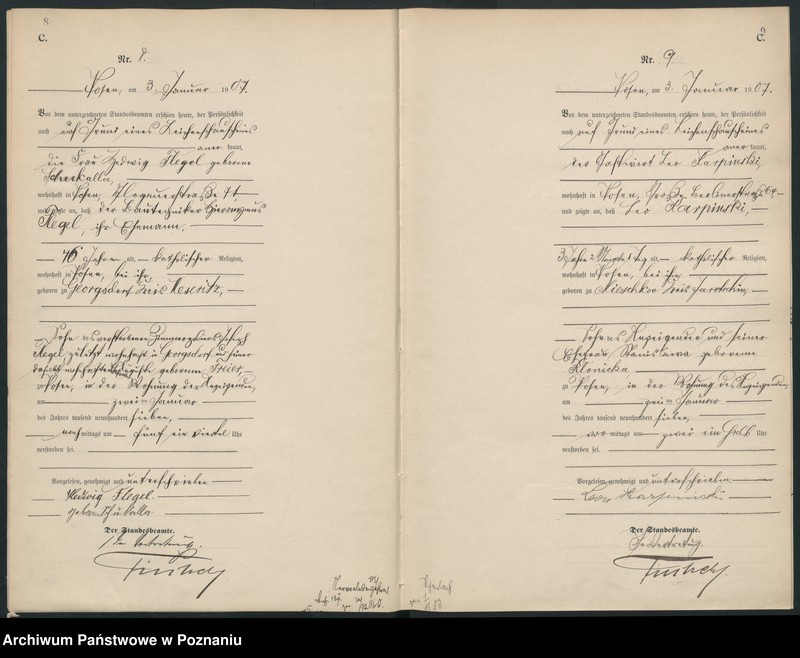 8
C.
Nr. 8.
Posen, am 3. Januar 1907.
Vor dem unterzeichneten Standesbeamten erschien heute, der Persönlichkeit
nach auf Grund eines Leichenschauscheins
aner kannt,
die Frau Hedwig Flegel geborene
wohnhaft in Posen, Glogauerstraße 71,
und zeigte an, daß der Bautechniker Hieronymus
Flegel, ihr Ehemann,
46 Jahre alt, katholischer Religion,
wohnhaft in Posen, bei ihr
geboren zu Georgsdorf Kreis Meseritz,
Sohn des verstorbenen Joseph
Flegel, zuletzt wohnhaft in Georgsdorf und seiner
daselbst geborene Freier,
zu Posen, in der Wohnung der Anzeigenden,
am zwei ten Januar
des Jahres tausend neunhundert sieben,
nach mittags um fünf ein viertel Uhr
verstorben sei.
Vorgelesen, genehmigt und unterschrieben
Hedwig Flegel
Der Standesbeamte.
In Vertretung.
9
C.
Nr. 9
Posen, am 3. Januar 1907.
Vor dem unterzeichneten Standesbeamten erschien heute, der Persönlichkeit
nach auf Grund eines Leichenschauscheines
aner kannt,
der Gastwirt Leo Karpinski,
wohnhaft in Posen, Große Berlinerstraße
und zeigte an, daß Leo Karpinski,
3 Jahre 2 Monate 1 Tag alt, katholischer Religion,
wohnhaft in Posen, bei ihm
geboren zu Mieschkow Kreis Jarotschin,
Sohn des Anzeigenden und seiner
Ehefrau Stanislawa geborene
Klonicka
zu Posen, in der Wohnung des Anzeigenden,
am zwei ten Januar
des Jahres tausend neunhundert sieben,
vor mittags um zwei ein halb Uhr
verstorben sei.
Vorgelesen, genehmigt und unterschrieben
Leo Karpinski
Der Standesbeamte.
In Vertretung.
Archiwum Państwowe w Poznaniu